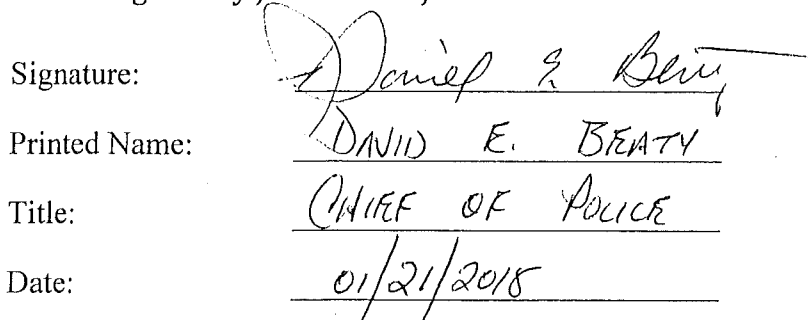 Signature: Daniel E Berry
Printed Name: DAVID E. BEATY
Title: CHIEF OF POLICE
Date: 01/21/2018